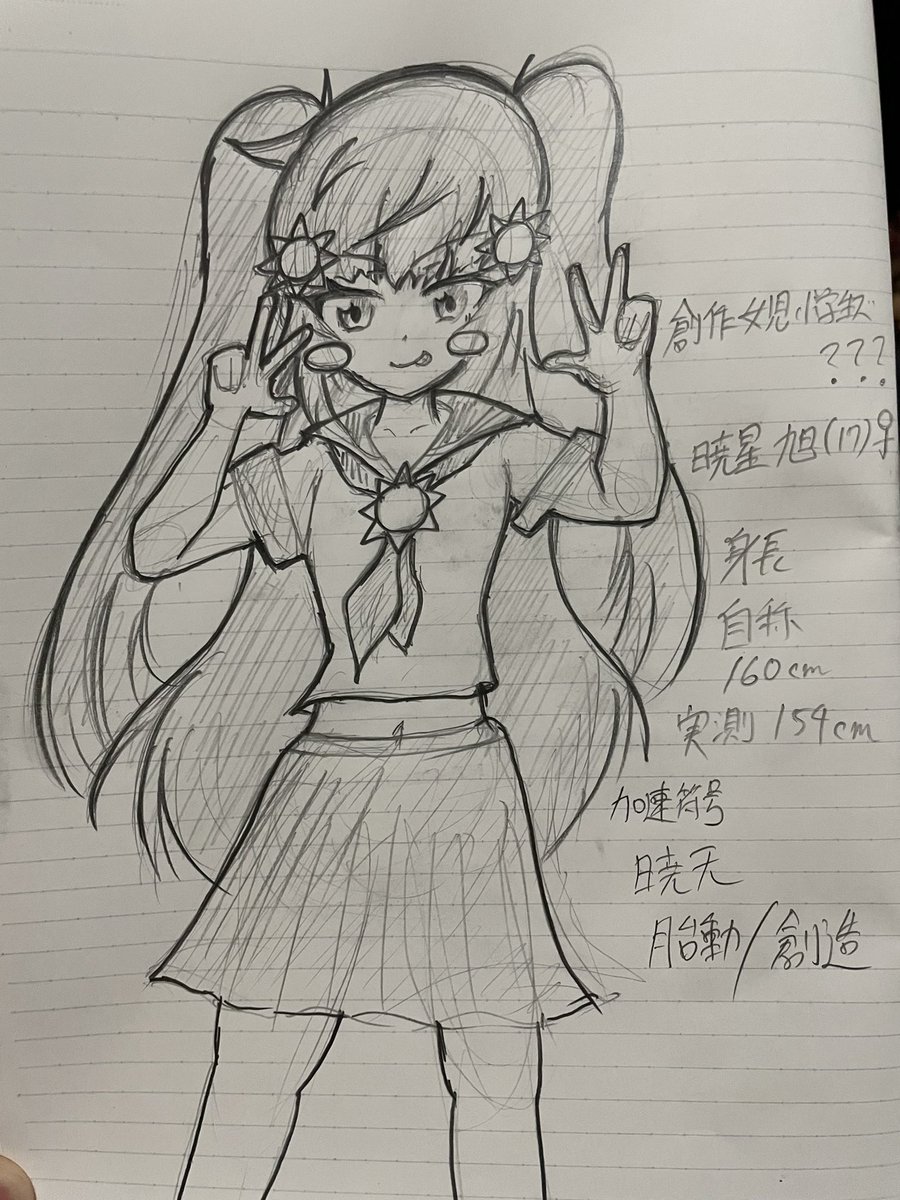 創作女児小学生ズ
???
暁星 旭(17)♀
身長
自称
160cm
実測 154cm
加速符号
暁天
胎動/創造